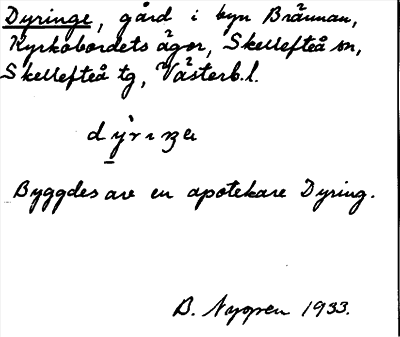 Dyringe, gård i byn Brännan,
Kyrkobordets ägor, Skellefteå sn,
Skellefteå tg, Västerb.l.
Byggdes av en apotekare Dyring.
B. Nygren 1933.